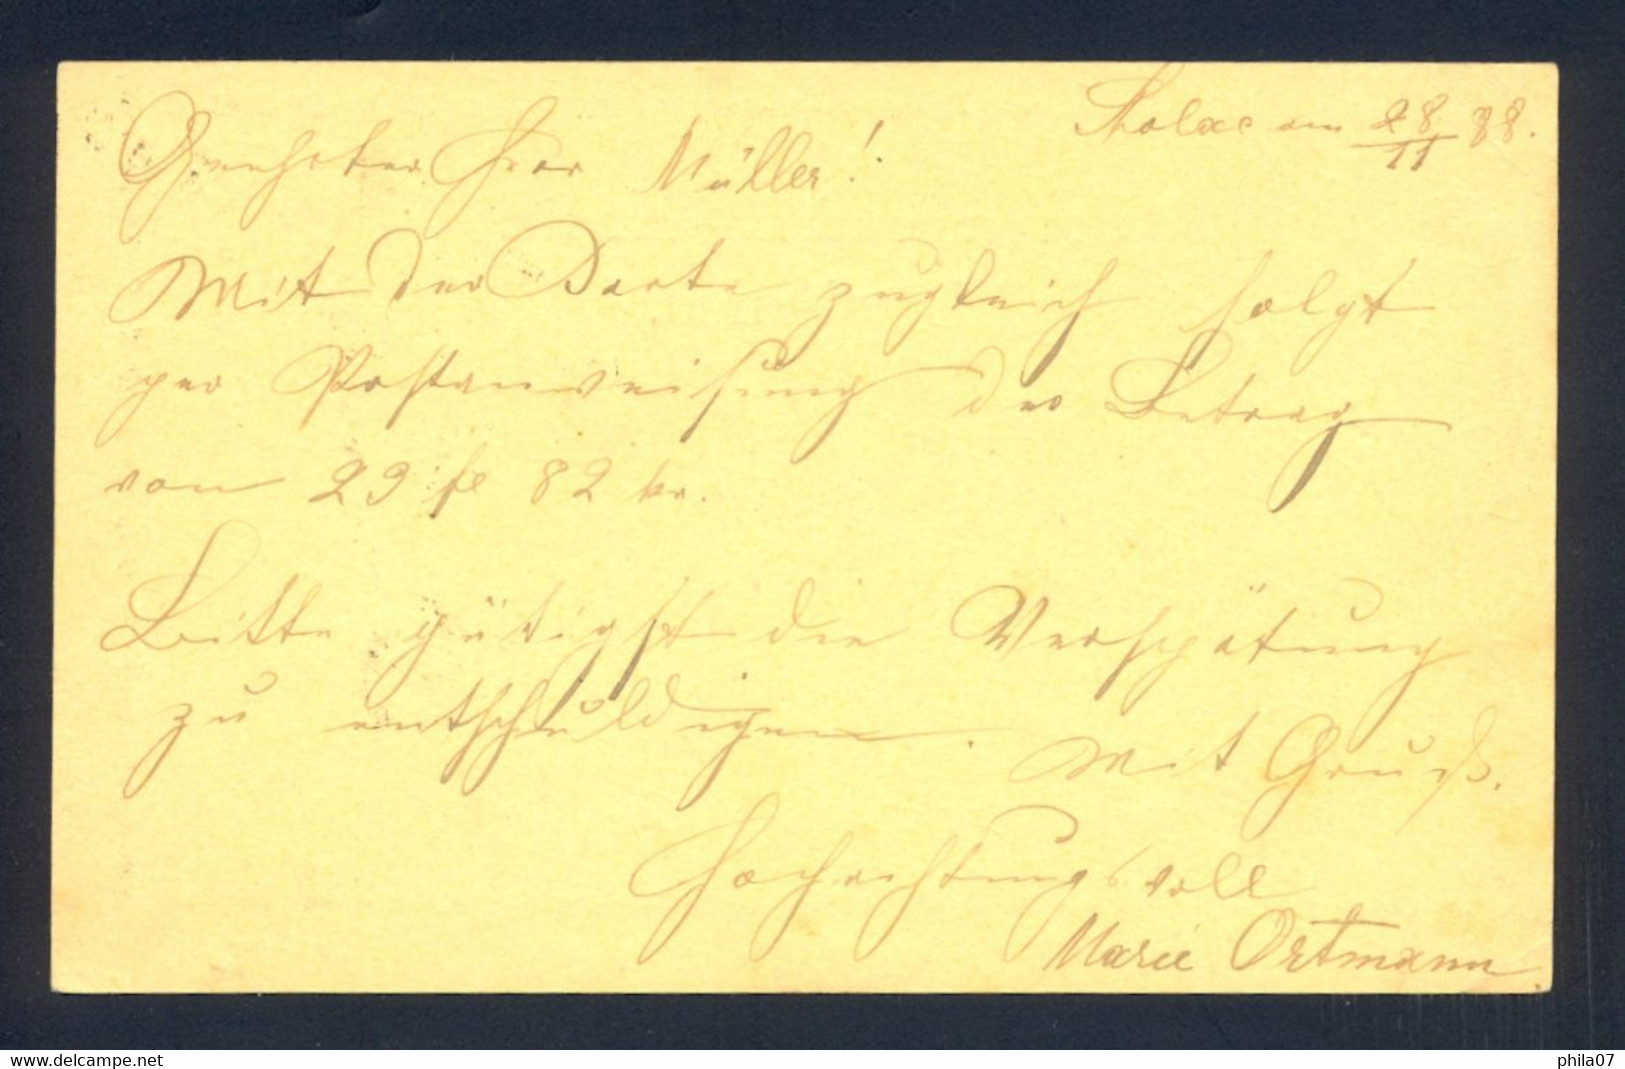 Stolac am 28/11 88.
Geehrter Herr Müller!
Mit der Karte zugleich folgt
per Postanweisung der Betrag
von 29 fl 82 kr.
Bitte gütigst die Verspätung
zu entschuldigen.
Mit Gruß.
Hochachtungsvoll
Marie Ortmann
www.delcampe.net
phila07